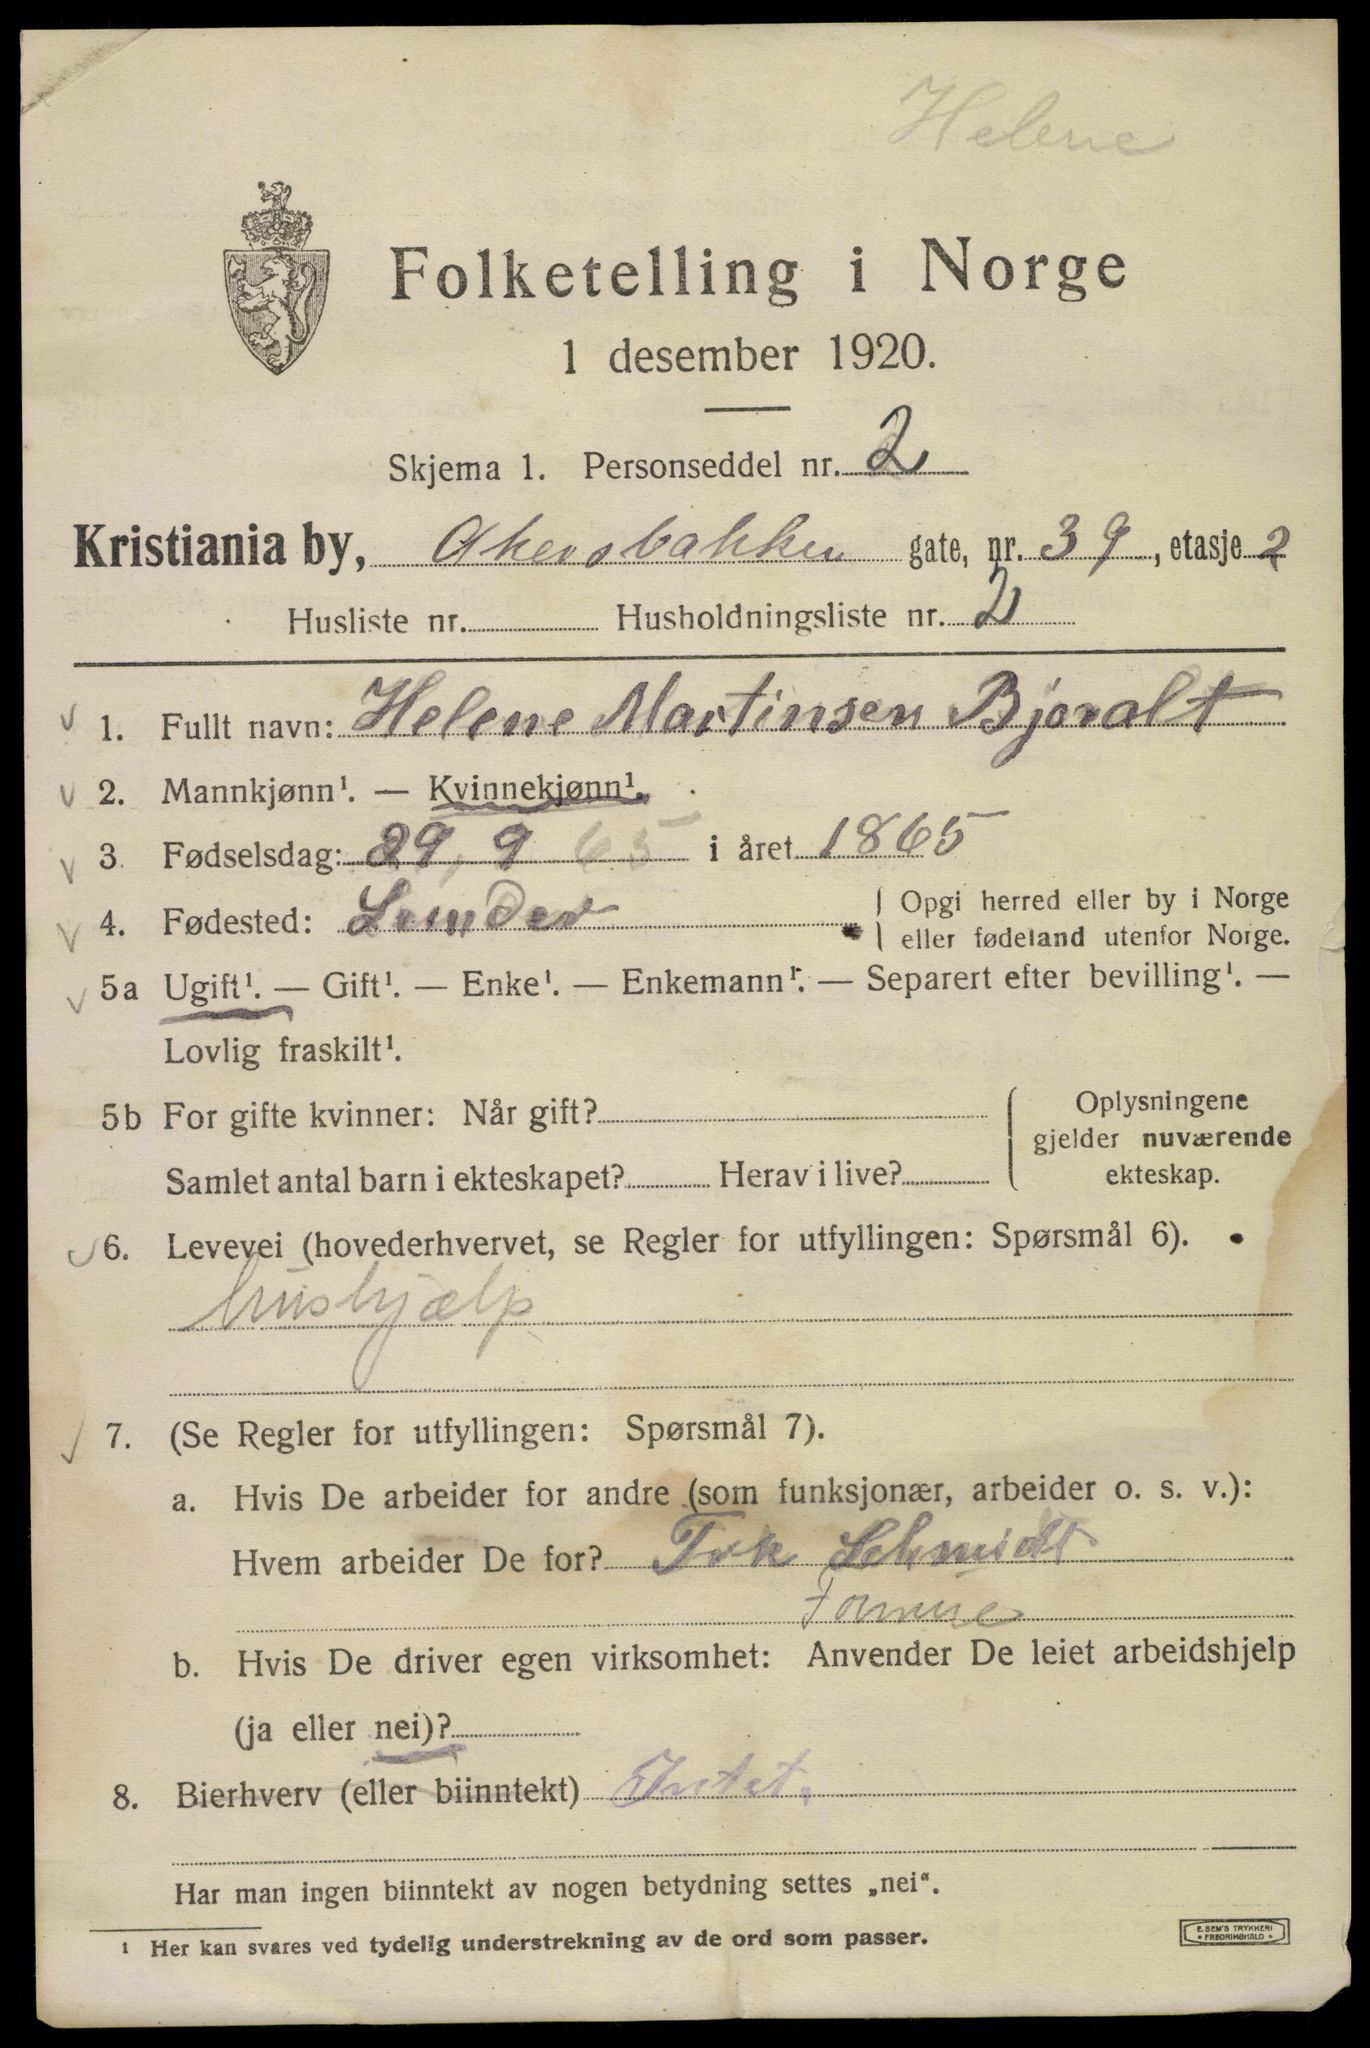 Helene
Folketelling i Norge
1 desember 1920.
Skjema 1. Personseddel nr. 2
Kristiania by, Akersbakken gate, nr. 39, etasje 2
Husliste nr. Husholdningsliste nr. 2
1. Fullt navn: Helene Martinsen Bjoralt
2. Mannkjønn¹. — Kvinnekjønn¹.
3 Fødselsdag: 29, 9 65 i året 1865
4. Fødested: Lunder Opgi herred eller by i Norge
eller fødeland utenfor Norge.
5a Ugift¹. — Gift¹. — Enke¹. — Enkemann¹. — Separert efter bevilling¹. —
Lovlig fraskilt¹.
5b For gifte kvinner: Når gift? Oplysningene
gjelder nuværende
Samlet antal barn i ekteskapet? Herav i live? ekteskap.
6. Levevei (hovederhvervet, se Regler for utfyllingen: Spørsmål 6).
hushjælp
7. (Se Regler for utfyllingen: Spørsmål 7).
a. Hvis De arbeider for andre (som funksjonær, arbeider o. s. v.):
Hvem arbeider De for? Frk Schmidt
b. Hvis De driver egen virksomhet: Anvender De leiet arbeidshjelp
(ja eller nei)?
8. Bierhverv (eller biinntekt) Intet.
Har man ingen biinntekt av nogen betydning settes „nei“.
¹ Her kan svares ved tydelig understrekning av de ord som passer.
E. SEM'S TRYKKERI
FREDRIKSHALD